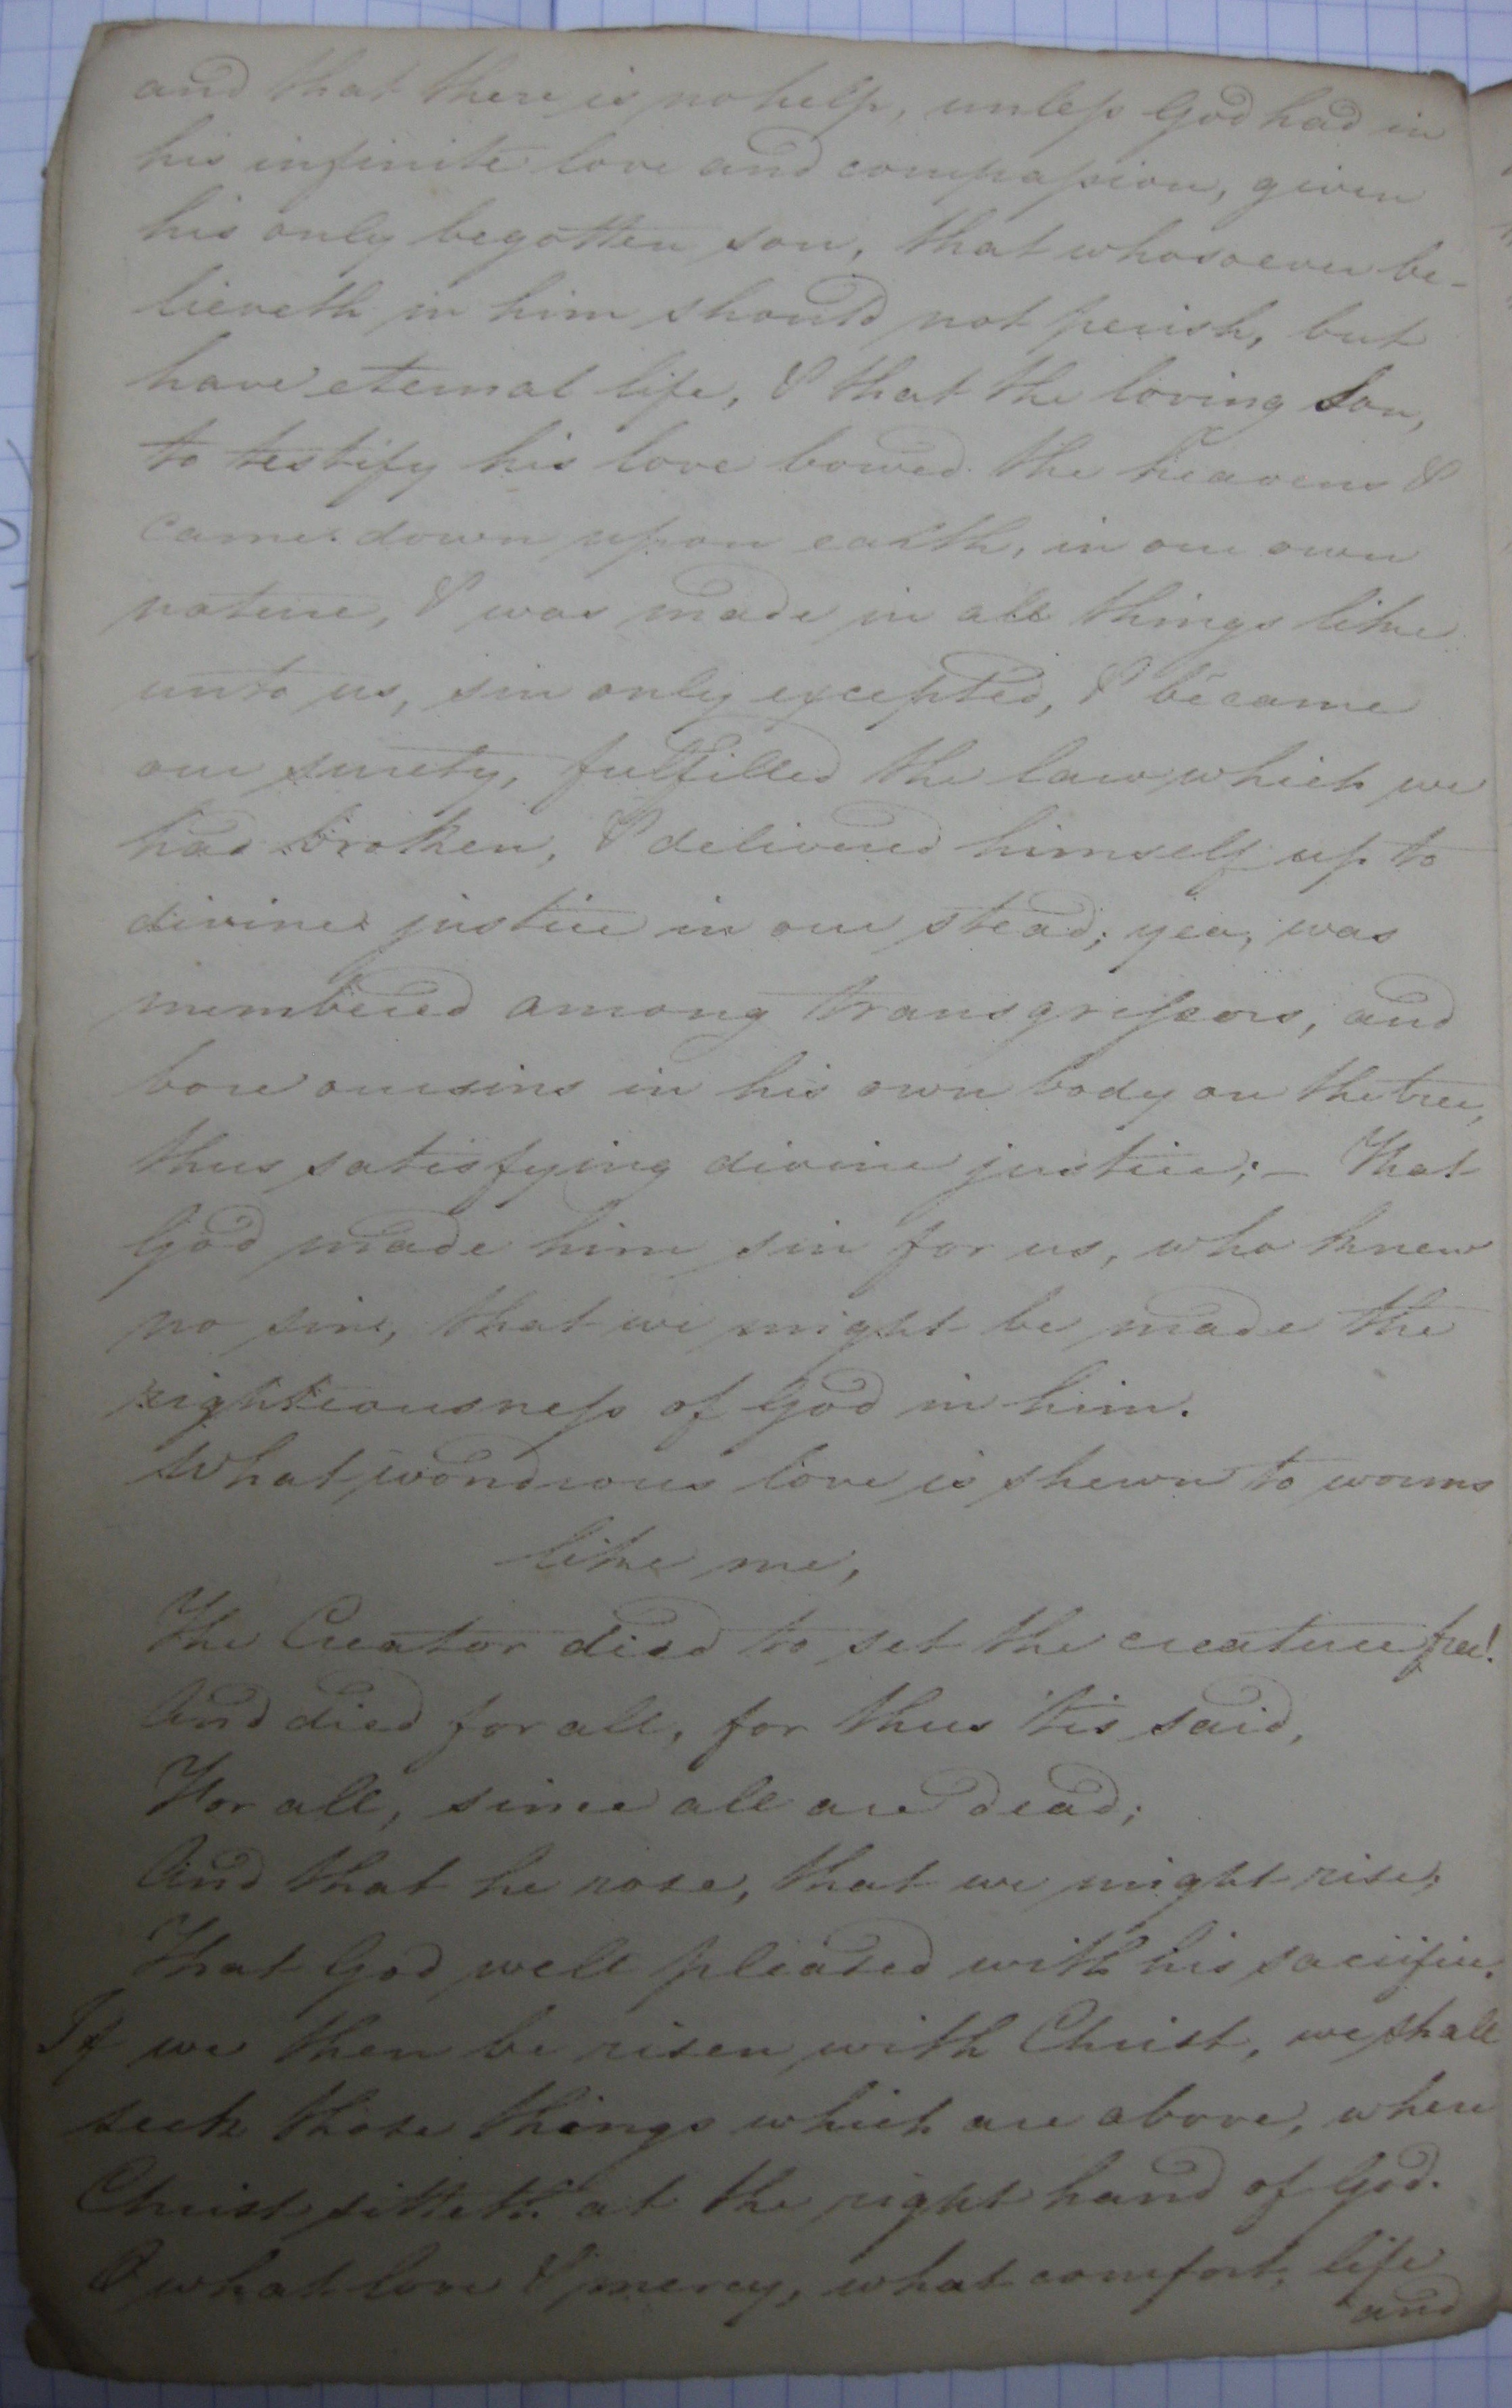 and that there is no help, unless God had in
his infinite love and compassion, given
his only begotten son, that whosoever be-
lieveth in him should not perish, but
have eternal life, & that the loving Son,
to testify his love bowed the heavens &
came down upon earth, in our own
nature, & was made in all things like
unto us, sin only excepted, & became
our surety, fulfilled the law which we
had broken, & delivered himself up to
divine justice in our stead; yea, was
numbered among transgressors, and
bore our sins in his own body on the tree,
thus satisfying divine justice; – That
God made him sin for us, who knew
no sin, that we might be made the
righteousness of God in him.
What wondrous love is shewn to worms
like me,
The Creator died to set the creature free!
And died for all, for thus 'tis said,
For all, since all are dead;
And that he rose, that we might rise,
That God well pleased with his sacrifice.
If we then be risen with Christ, we shall
seek those things which are above, where
Christ sitteth at the right hand of God.
O what love & mercy, what comfort, life
and